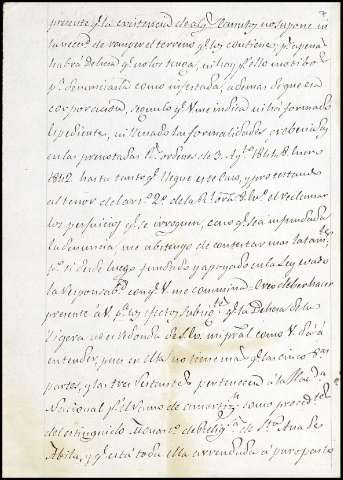 presente q.e la existencia de alg.s Canutos no supone in-
tancen.. de romper el terreno q.e los contiene, p.s apenas
habrá dehesa q.e no los tenga, ni hay p.r ello motibo
p.a denunciarla como infestada, ademas de que esa
corporacion, segun lo q.e V. me indica ni há formado
Espediente, ni llenado las formalidades prebenidas
en las prenotadas R.s ordenes de 3. Ag.to 1841. y 8. Enero
1842. hasta tanto q.e llegue este caso, y protestando
al tenor de el art.o 2.o de la R.l orn el reclamar
los perjuicios q.e se irroguen, caso q.e sea infundada
la denuncia me abstengo de contestar mas latam.te
p.o si desde luego fundado y apoyado en la Ley evado
la responsab.d con q.e V. me conmina. Creo deber hacer
presente á V. p.a los efectos subsig.tes q.e la Dehesa de la
Higera no es redonda de S.E. mi pral como V. dá á
entender, pues en ella no tiene mas q.e las cinco
partes, y las tres restantes pertenecen á la Hac.da
Nacional p.r el ramo de amortiz.n como proced.te
del estinguido Monast.o de Relig.s de S.ta Ana de
Abila, y q.e está toda ella arrendada á puro pasto